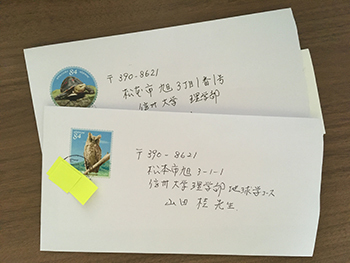 84
〒390-8621
松本市旭3丁目1番1号
信州大学 理学部
84
〒390-8621
松本市旭3-1-1
信州大学理学部地球学コース
山田 桂 先生